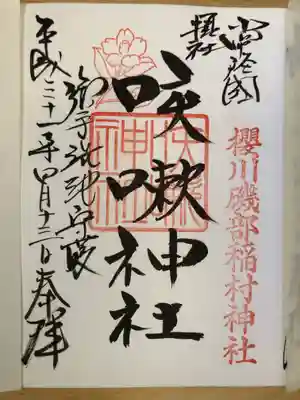 常陸国
摂社
櫻川磯部稲村神社
咳嗽神社
御手洗池守護
平成三十一年四月十三日奉拝